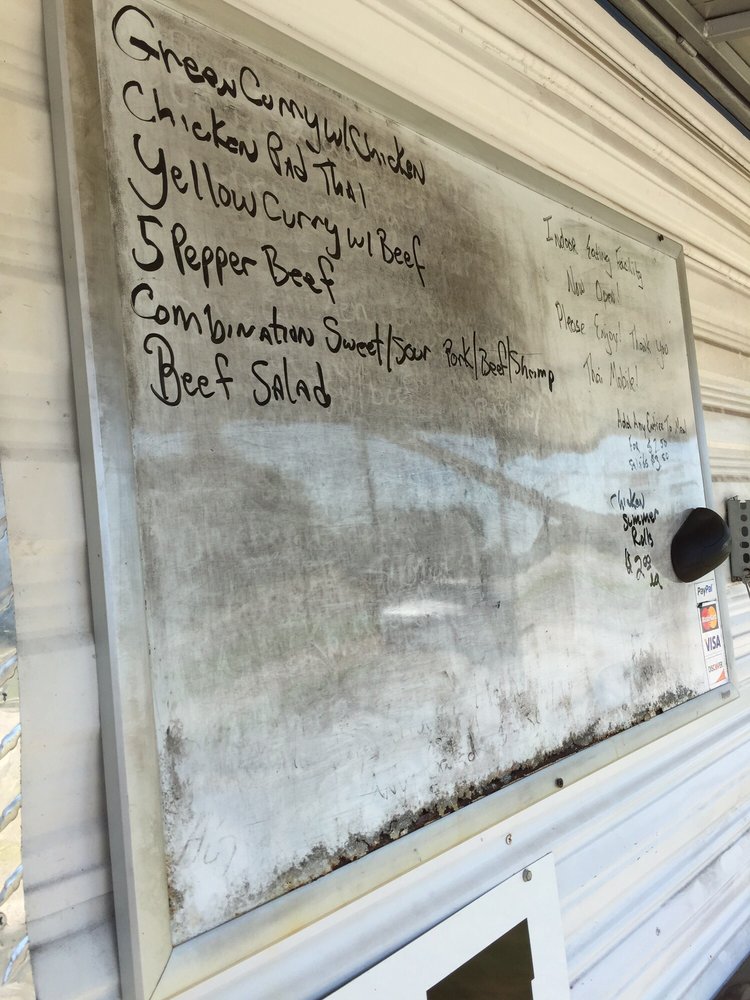 Green Curry w/ Chicken
Chicken Pad Thai
Yellow Curry w/ Beef
5 Pepper Beef
Combination Sweet/Sour Pork/Beef/Shrimp
Beef Salad
Indoor Eating Facility
Now Open!
Please Enjoy! Thank You
Thai Mobile!
Add Any Entree To Meal
For $
Salads $
Chicken
Summer
Rolls
$2.00
ea
PayPal
MasterCard
VISA
DISCOVER